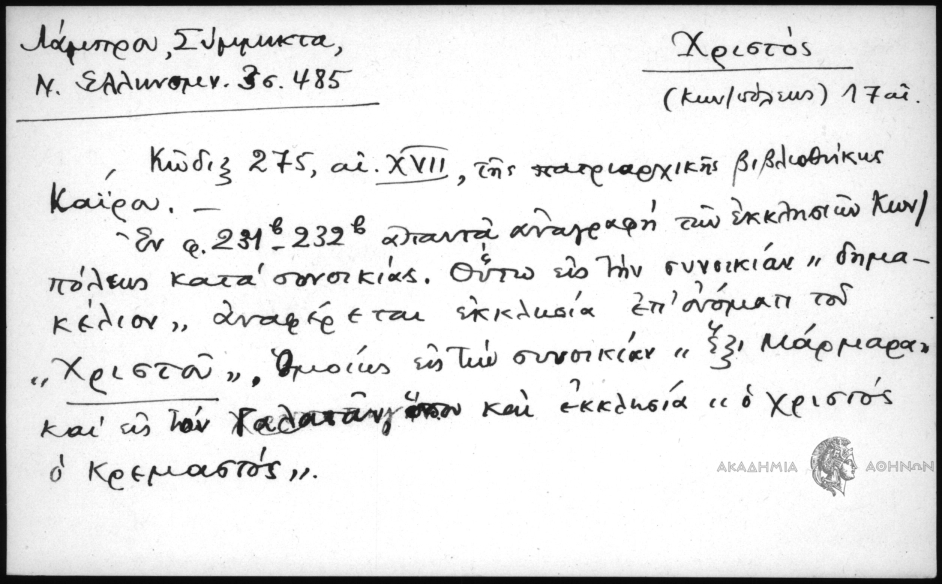 Λάμπρου, Σύμμικτα,
Ν. Ελληνομν. 3 σ. 485
Χριστός
(Κων/πόλεως) 17 αι.
Κῶδιξ 275, αἰ. XVII, τῆς πατριαρχικῆς βιβλιοθήκης
Καΐρου. –
Ἐν φ. 231β-232β ἀπαντᾶ ἀναγραφή τῶν ἐκκλησιῶν Κων/
πόλεως κατά συνοικίας. Οὕτω εἰς τὴν συνοικίαν „ δημα-
κέλιον „ ἀναφέρεται ἐκκλησία ἐπ' ὀνόματι τοῦ
„ Χριστοῦ „, Ὁμοίως εἰς τὴν συνοικίαν „ ἕξι Μάρμαρα„
καί εἰς τὸν Γαλατᾶν ὅπου καὶ ἐκκλησία „ ὁ Χριστός
ὁ Κρεμαστός „.
ΑΚΑΔΗΜΙΑ ΑΘΗΝΩΝ